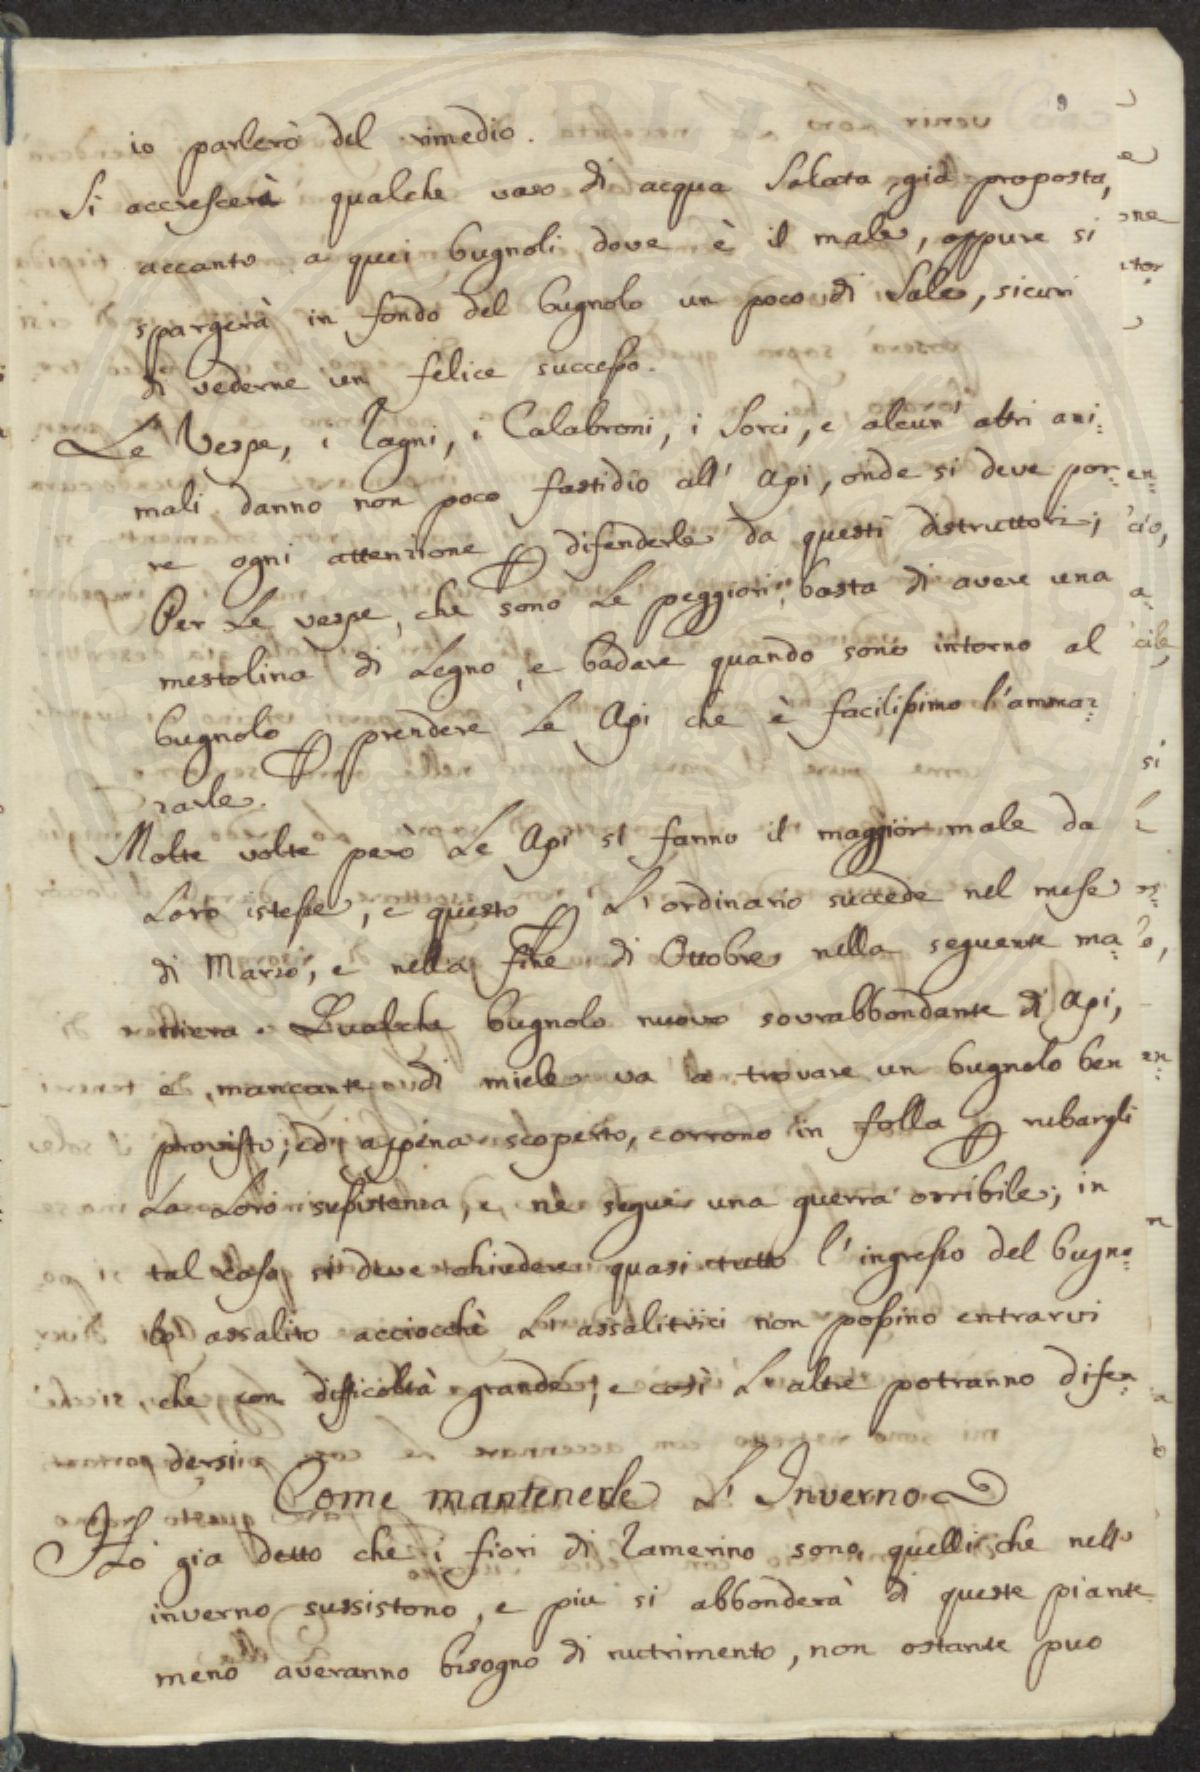 9
io parlerò del rimedio.
Si accrescerà qualche vaso di acqua Salata, già proposta,
accanto a quei bugnoli, dove è il male, oppure si
spargerà in fondo del bugnolo un poco di Sale, sicuri
di vederne un felice successo.
Le Vespe, i Ragni, i Calabroni, i Sorci, e alcun' altri ani:
mali danno non poco fastidio all' Api, onde si deve por:
re ogni attenzione ꝑ difenderle da questi distruttori;
Per Le vespe, che sono Le peggiori, basta di avere una
mestolina di Legno, e badare quando sono intorno al
bugnolo ꝑ prendere Le Api che è facilissimo l'ammaz:
zarle.
Molte volte però Le Api si fanno il maggior male da
Loro istesse, e questo ꝑ L'ordinario succede nel mese
di Marzo, e nella fine di Ottobre nella seguente ma:
niera. Qualche bugnolo nuovo sovrabbondante di Api,
e mancante di miele va a trovare un bugnolo ben
provisto; ed appena scoperto, corrono in folla ꝑ rubargli
La Loro sussistenza, e nè segue una guerra orribile; in
tal caso si deve chiudere quasi tutto l'ingresso del bugno:
lo assalito acciocchè L' assalitrici non possino entrarvi
che con difficoltà grande, e così L' altre potranno difen:
dersi.
Come mantenerle L' Inverno
Hò gia detto che i fiori di Ramerino sono quelli che nell'
inverno sussistono, e piu si abbonderà di queste piante
meno averanno bisogno di nutrimento, non ostante puo